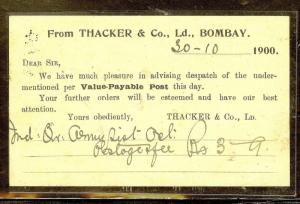 From THACKER & Co., Ld., BOMBAY.
30-10 1900.
DEAR SIR,
We have much pleasure in advising despatch of the under-
mentioned per Value-Payable Post this day.
Your further orders will be esteemed and have our best
attention.
Yours obediently, THACKER & Co., LD.
Ind: Qr. Army List Oct:
Postage & fee Rs 3-9